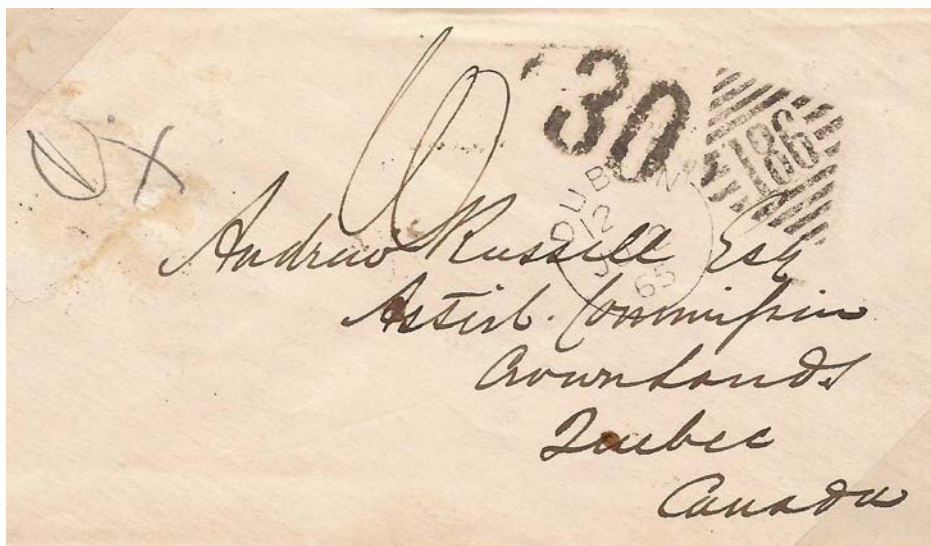 30
186
DUBLIN
12
65
Andrew Russell Esq
Assist. Commission
Crown Lands
Quebec
Canada